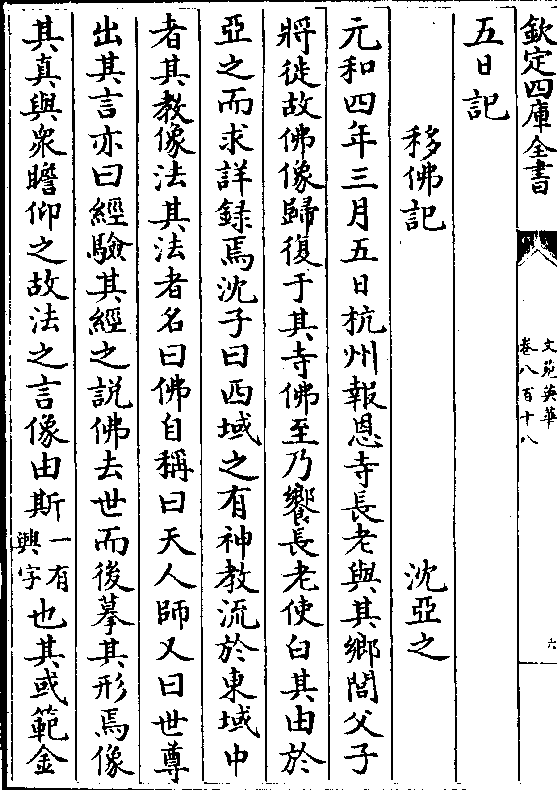 欽定四庫全書
文苑英華
卷八百十八
六
五日記
移佛記
沈亞之
元和四年三月五日杭州報恩寺長老與其鄉閭父子
將徙故佛像歸復于其寺佛至乃饗長老使白其由於
亞之而求詳録焉沈子曰西域之有神教流於東域中
者其教像法其法者名曰佛自稱曰天人師又曰世尊
出其言亦曰經驗其經之説佛去世而後摹其形焉像
其真與衆瞻仰之故法之言像由斯一有興字也其或範金